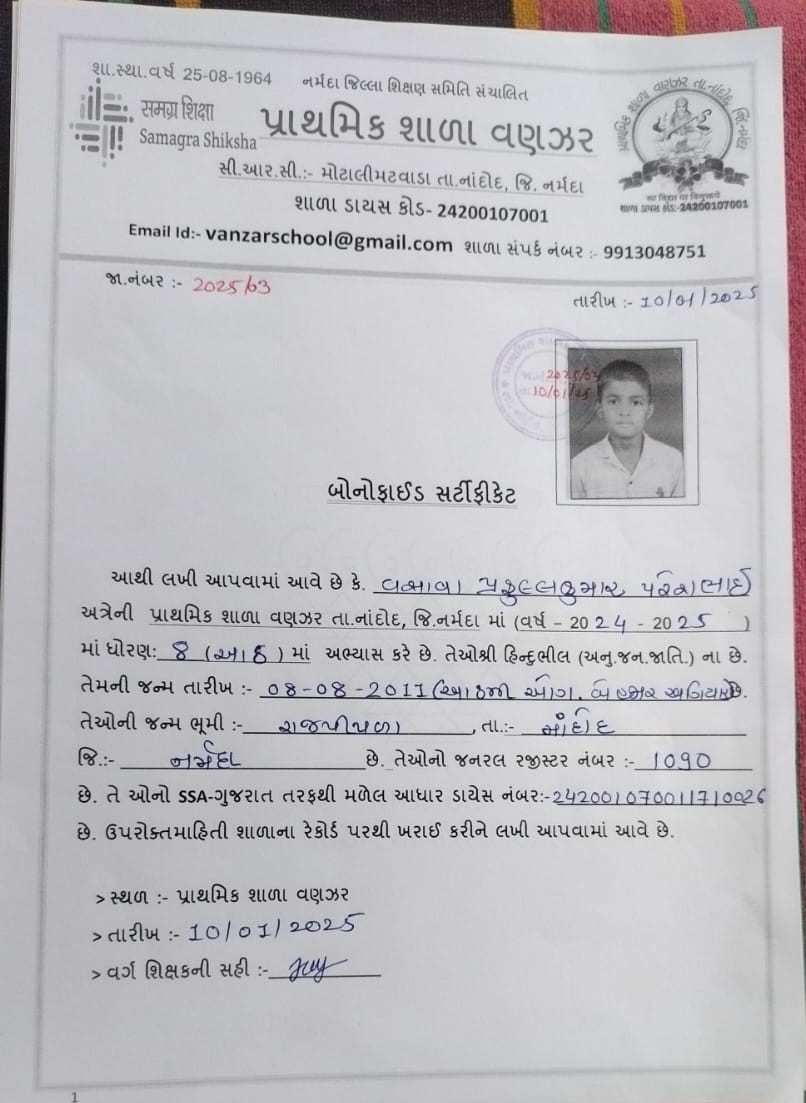 શા.સ્થા.વર્ષ 25-08-1964 નર્મદા જિલ્લા શિક્ષણ સમિતિ સંચાલિત
समग्र शिक्षा
Samagra Shiksha
પ્રાથમિક શાળા વણઝર
સી.આર.સી.:- મોટાલીમટવાડા તા.નાંદોદ, જિ. નર્મદા
શાળા ડાયસ કોડ- 24200107001
શાળા ડાયસ કોડ:-24200107001
Email Id:- vanzarschool@gmail.com શાળા સંપર્ક નંબર :- 9913048751
જા.નંબર :- 2025/63
તારીખ :- 10/01/2025
2025/63
10/01/25
બોનોફાઈડ સર્ટીફીકેટ
આથી લખી આપવામાં આવે છે કે. વસાવા પ્રફુલ્લકુમાર પરેશભાઈ
અત્રેની પ્રાથમિક શાળા વણઝર તા.નાંદોદ, જિ.નર્મદા માં (વર્ષ – 2024 - 2025 )
માં ધોરણ: 8 (આઠ) માં અભ્યાસ કરે છે. તેઓશ્રી હિન્દુભીલ (અનુ.જન.જાતિ.) ના છે.
તેમની જન્મ તારીખ :- 08-08-2011 (આઠમી ઓગ. બે હજાર અગિયાર) છે.
તેઓની જન્મ ભૂમી :- રાજપીપળા, તા.:- નાંદોદ
જિ.:- નર્મદા છે. તેઓનો જનરલ રજીસ્ટર નંબર :- 1090
છે. તે ઓનો SSA-ગુજરાત તરફથી મળેલ આધાર ડાયેસ નંબર:-242001070011710026
છે. ઉપરોક્તમાહિતી શાળાના રેકોર્ડ પરથી ખરાઈ કરીને લખી આપવામાં આવે છે.
> સ્થળ :- પ્રાથમિક શાળા વણઝર
> તારીખ :- 10/01/2025
> વર્ગ શિક્ષકની સહી :-
1